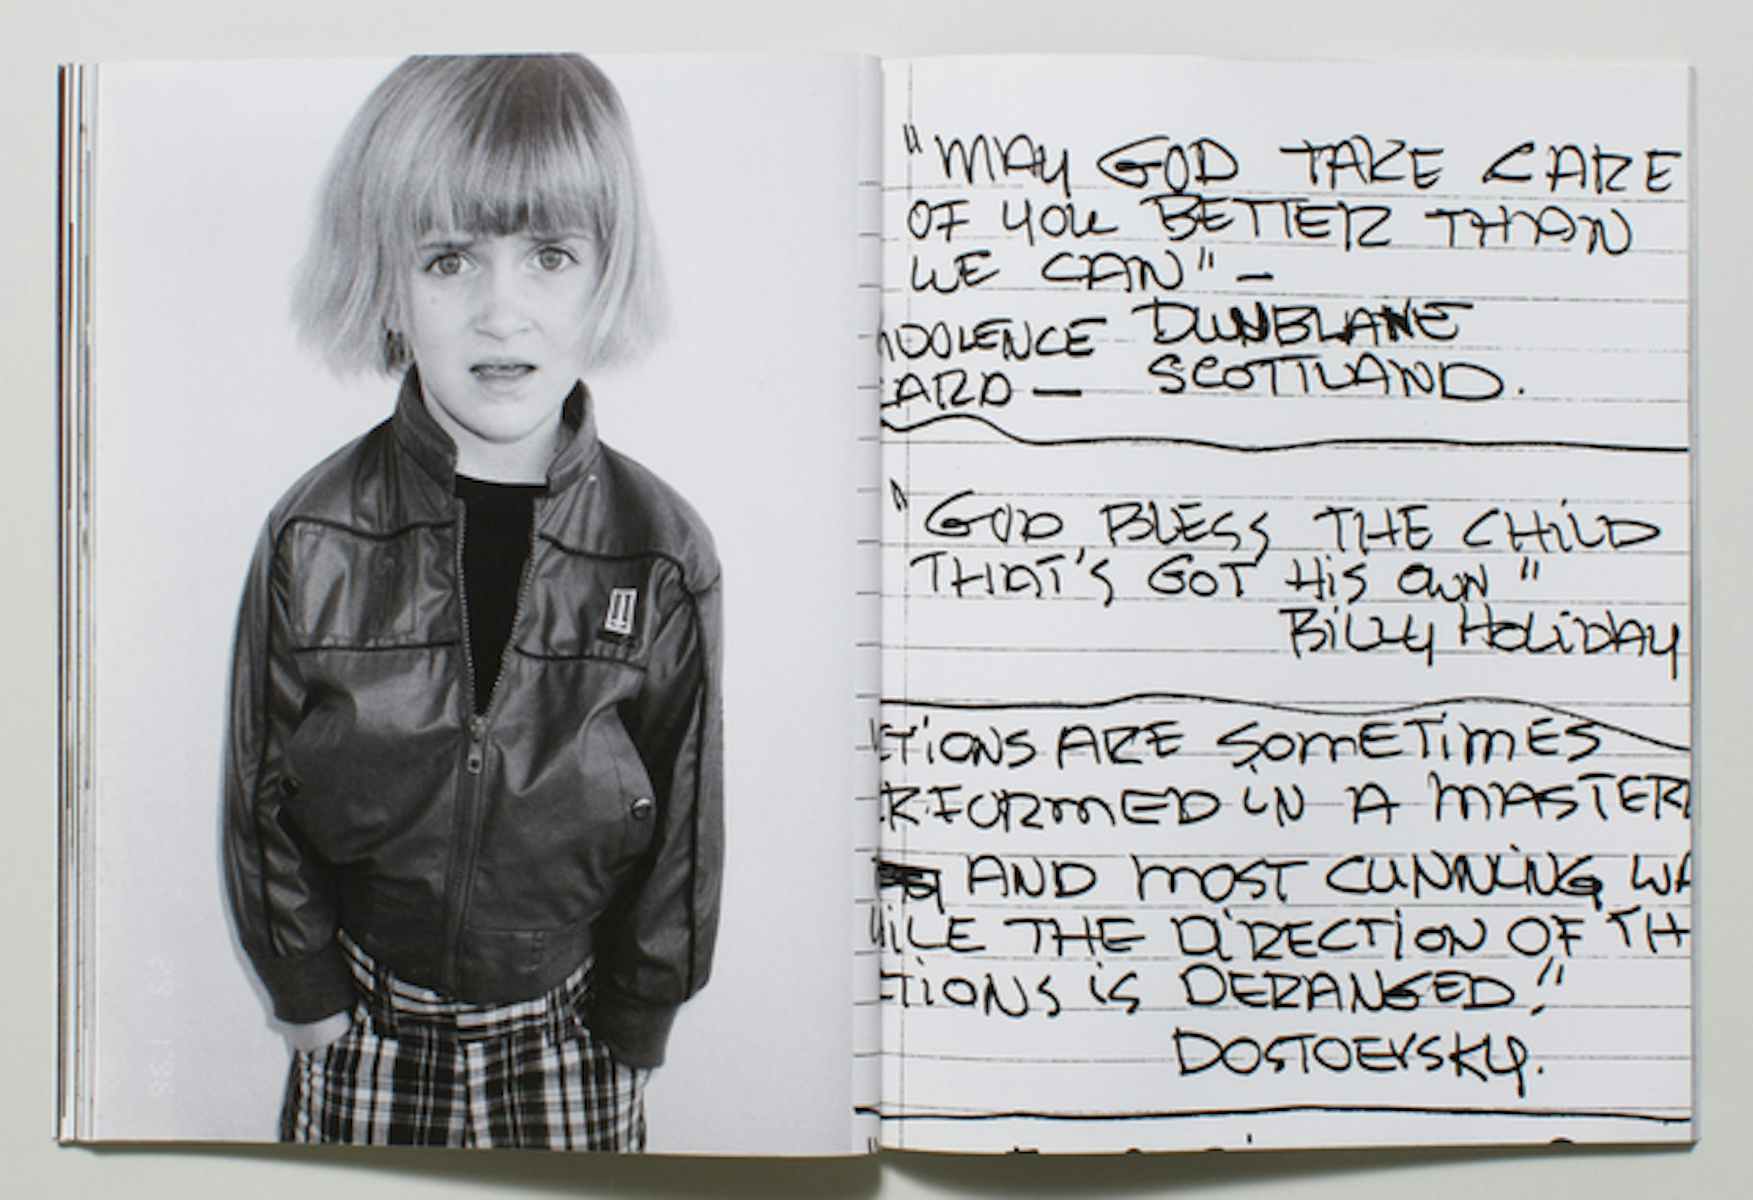 "MAY GOD TAKE CARE
OF YOU BETTER THAN
WE CAN" -
DUNBLANE
NDOLENCE
CARD - SCOTTLAND.
"GOD BLESS THE CHILD
THAT'S GOT HIS OWN"
BILLY HOLIDAY
"ETIONS ARE SOMETIMES
RFORMED IN A MASTER
AND MOST CUNNING WA
HILE THE DIRECTION OF TH
TIONS IS DERANGED."
DOSTOEVSKY.